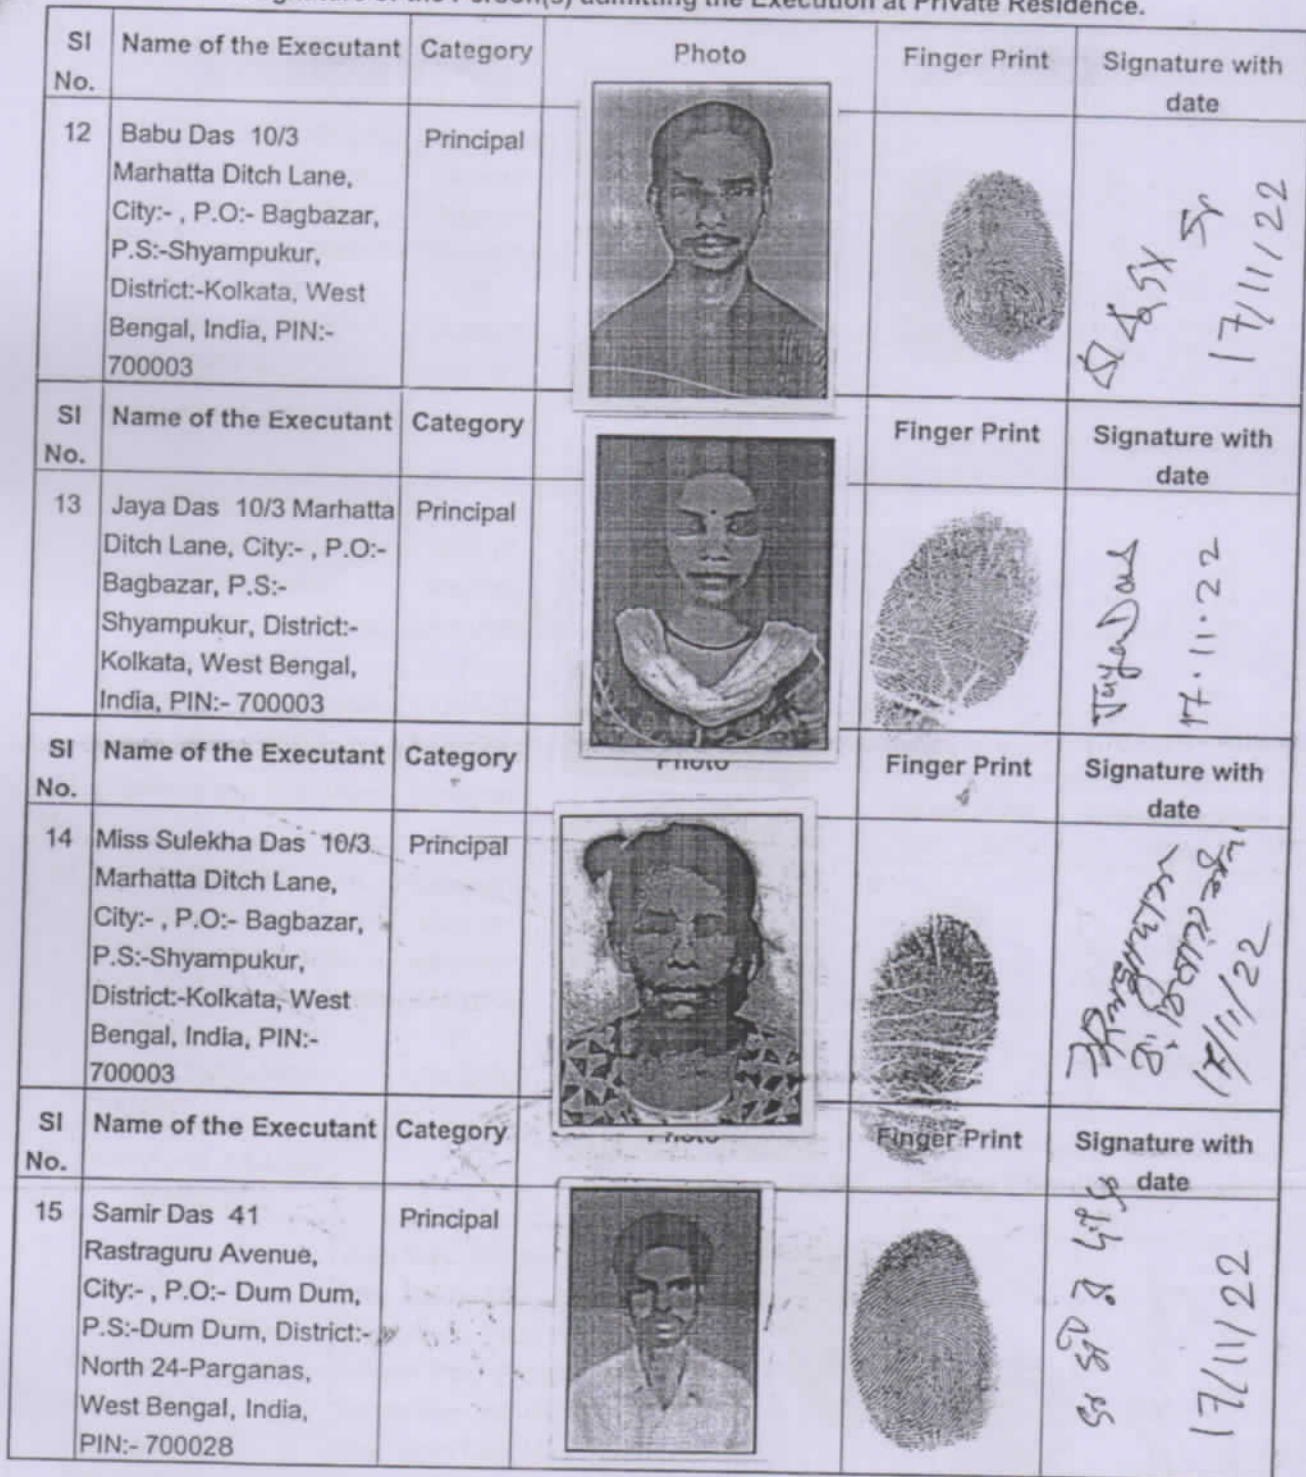 the Person(s) admitting the Execution at Private Residence.
Sl No. Name of the Executant Category Photo Finger Print Signature with date
12 Babu Das 10/3 Principal
Marhatta Ditch Lane,
City:- , P.O:- Bagbazar,
P.S:-Shyampukur,
District:-Kolkata, West
Bengal, India, PIN:-
700003
17/11/22
Sl No. Name of the Executant Category Finger Print Signature with date
13 Jaya Das 10/3 Marhatta Principal
Ditch Lane, City:- , P.O:-
Bagbazar, P.S:-
Shyampukur, District:-
Kolkata, West Bengal,
India, PIN:- 700003
Jaya Das
17.11.22
Sl No. Name of the Executant Category Photo Finger Print Signature with date
14 Miss Sulekha Das 10/3 Principal
Marhatta Ditch Lane,
City:- , P.O:- Bagbazar,
P.S:-Shyampukur,
District:-Kolkata, West
Bengal, India, PIN:-
700003
17/11/22
Sl No. Name of the Executant Category Photo Finger Print Signature with date
15 Samir Das 41 Principal
Rastraguru Avenue,
City:- , P.O:- Dum Dum,
P.S:-Dum Dum, District:-
North 24-Parganas,
West Bengal, India,
PIN:- 700028
17/11/22